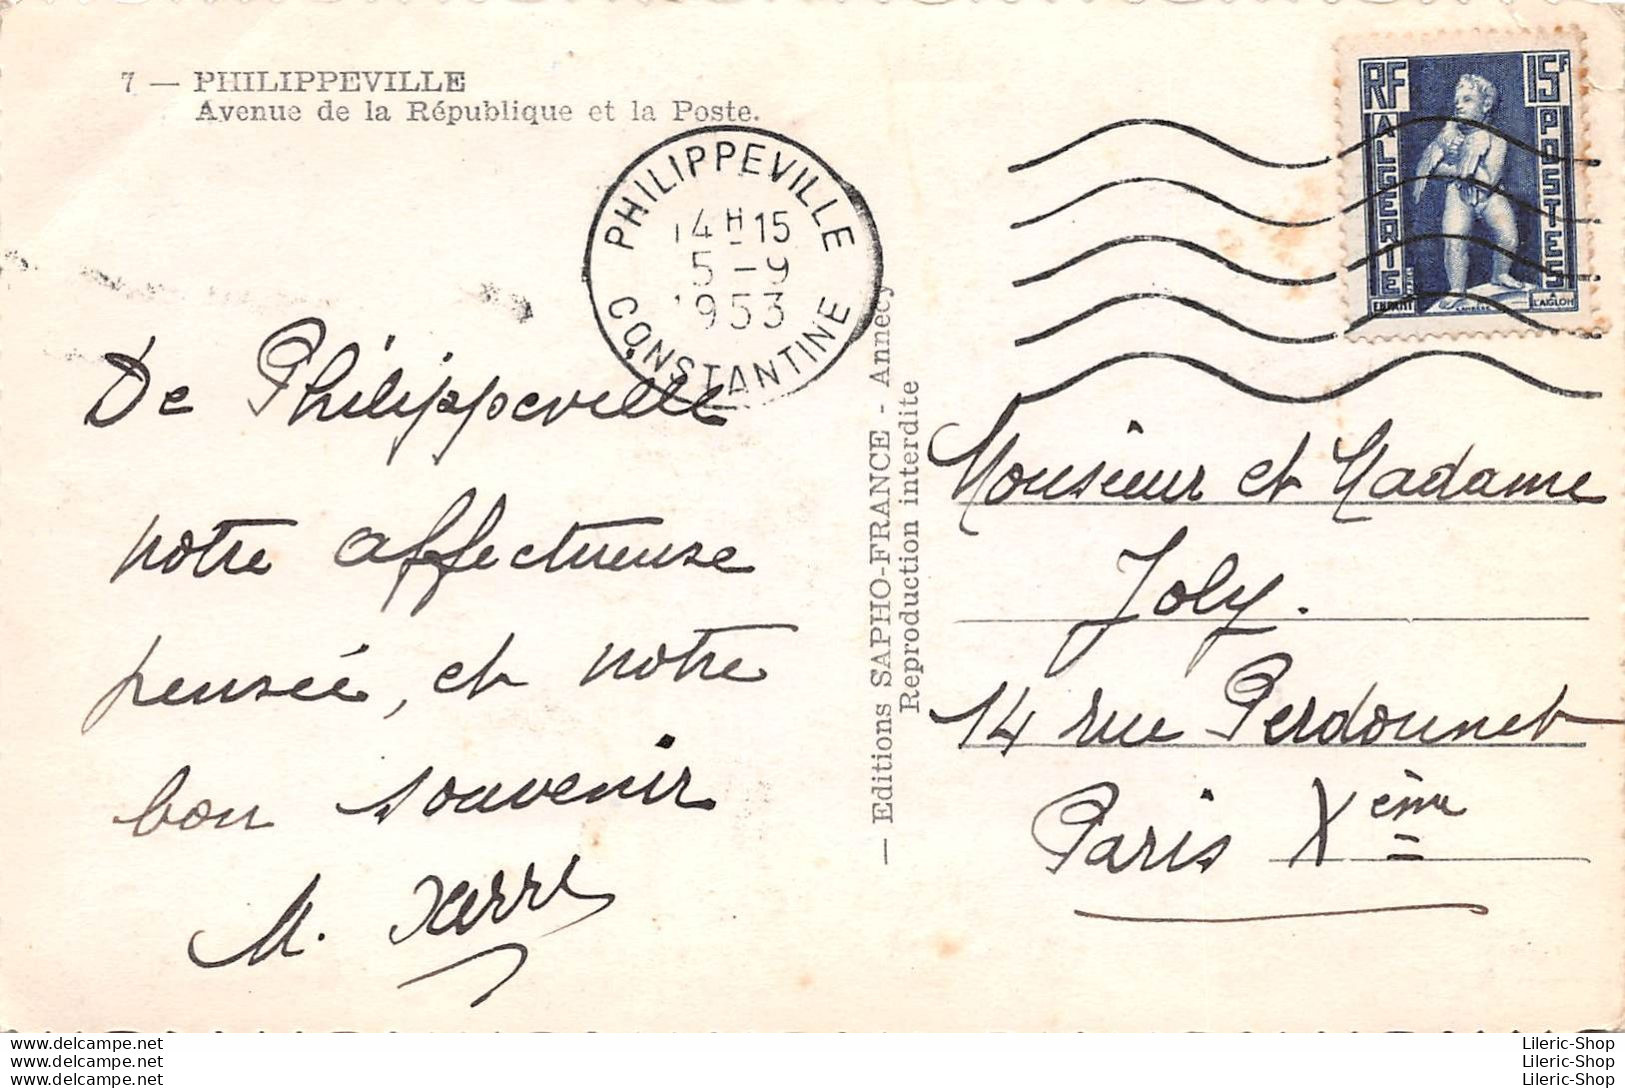 7 — PHILIPPEVILLE
Avenue de la République et la Poste.
PHILIPPEVILLE
14H15
5-9
1953
CONSTANTINE
RF
15F
ALGERIE
POSTES
ENFANT
L'AIGLON
De Philippeville
notre affectueuse
pensée, et notre
bon souvenir
M.
— Editions SAPHO-FRANCE - Annecy
Reproduction interdite
Monsieur et Madame
Joly.
14 rue Perdonnet
Paris Xème
Lileric-Shop
Lileric-Shop
Lileric-Shop
Lileric-Shop
Lileric-Shop
Lileric-Shop